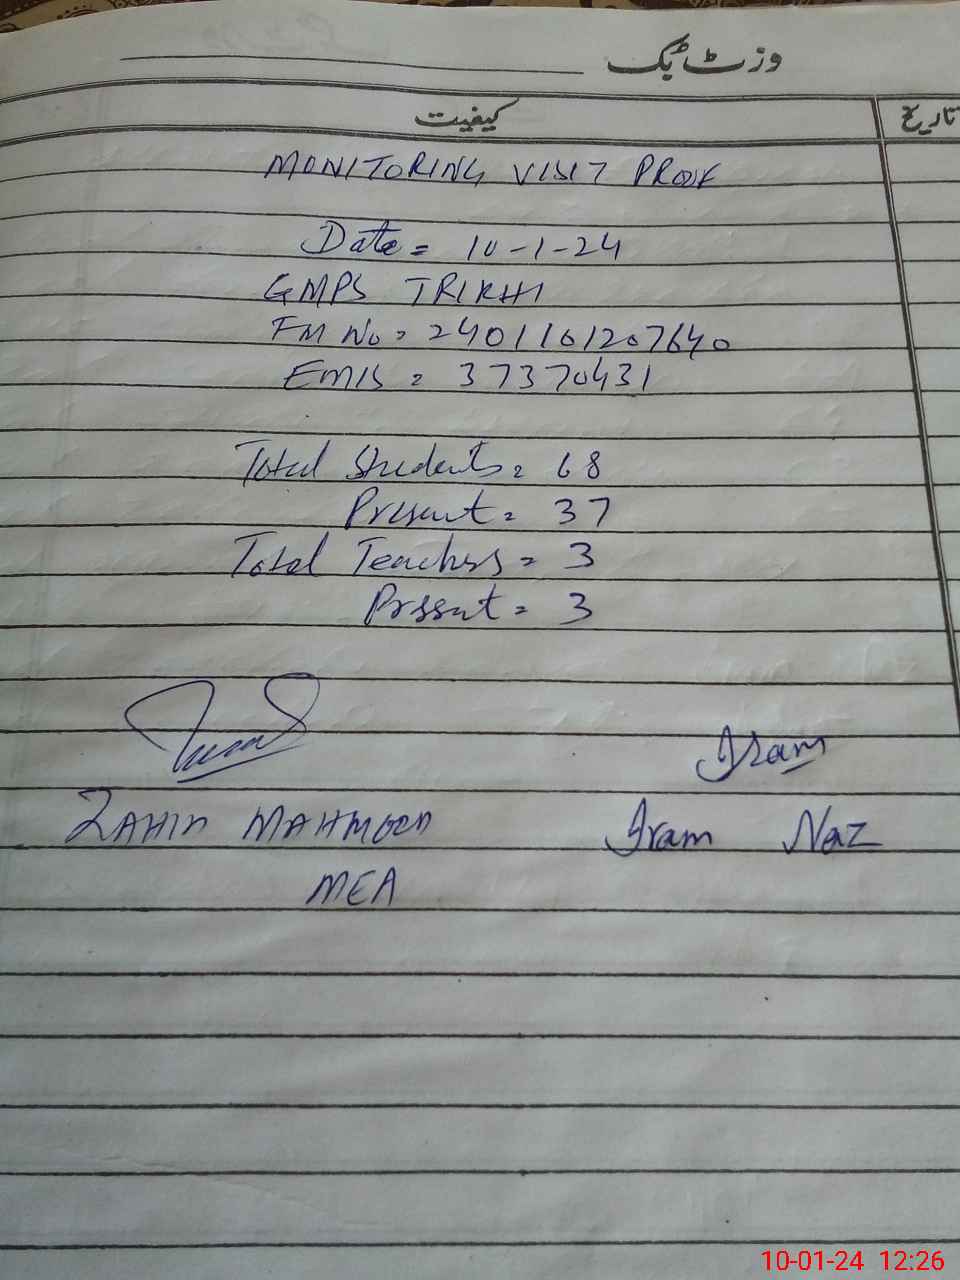 وزٹ بک
کیفیت
تاریخ
MONITORING VISIT PROOF
Date = 10-1-24
GMPS TRIKHI
FM No = 2401101207640
EMIS = 37370431
Total Students = 68
Present = 37
Total Teachers = 3
Present = 3
Iram
ZAHID MAHMOOD
Iram Naz
MEA
10-01-24 12:26